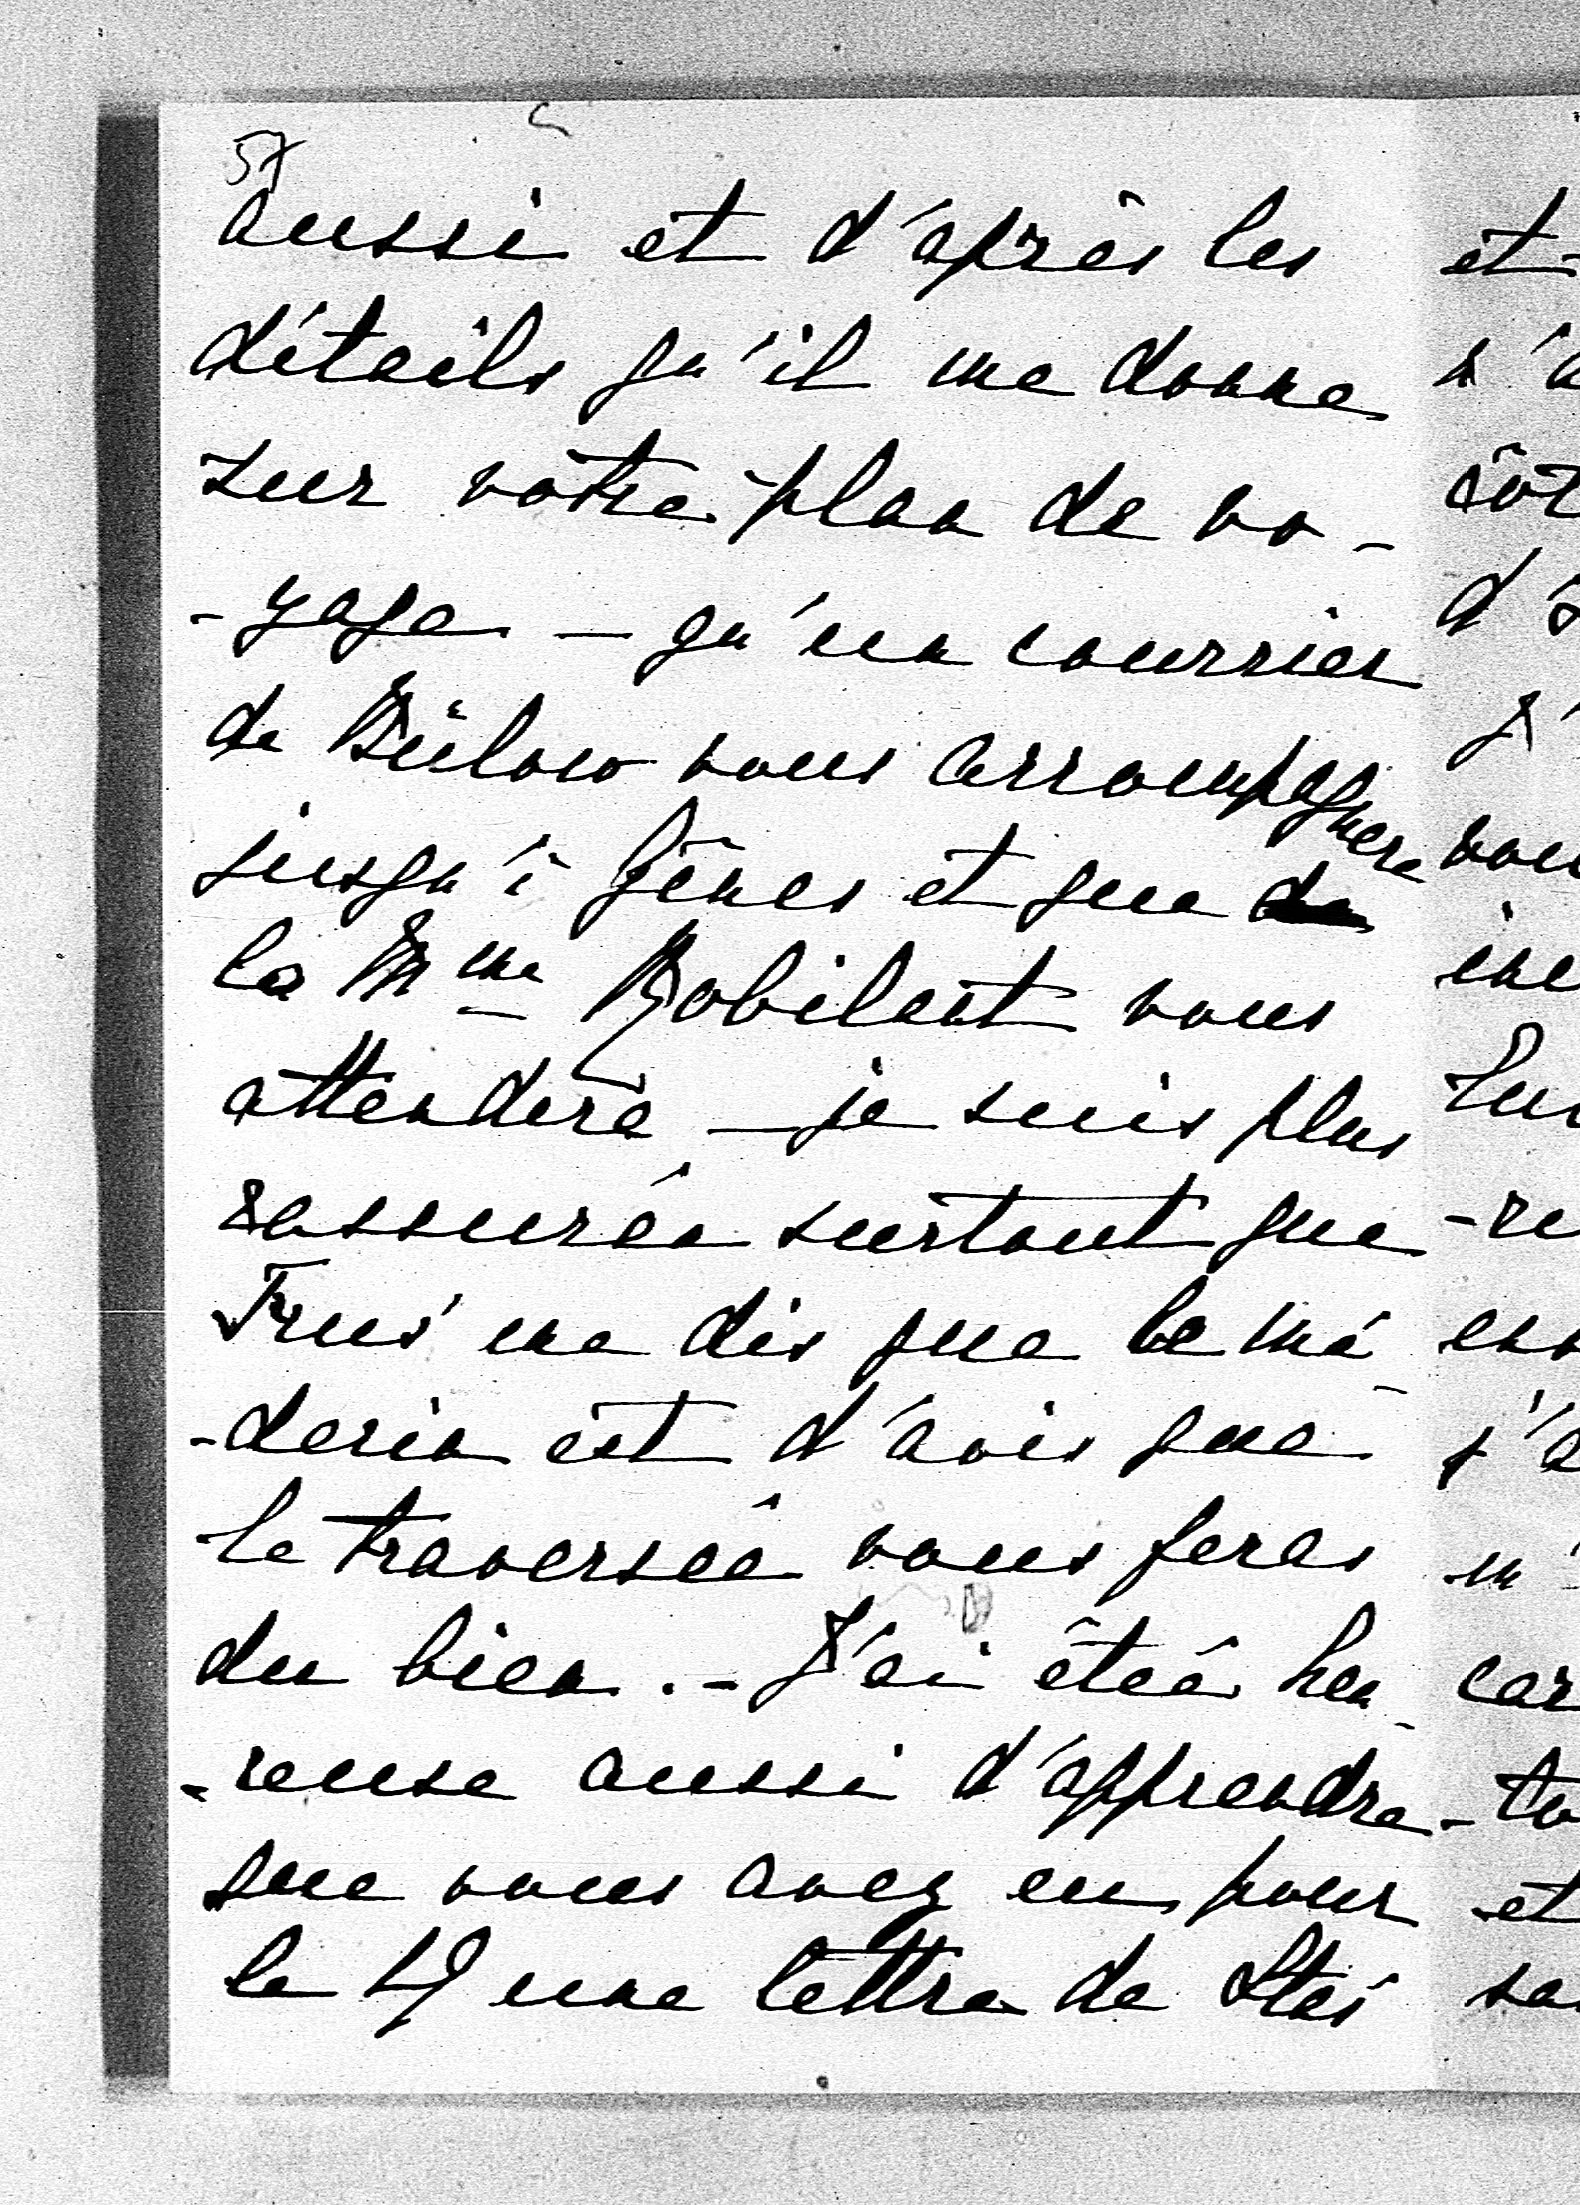 57
aussi et d'après les
détails qu'il me donne
sur votre plan de vo-
-yage — qu'un courrier
de Bülow vous accompagnera
jusqu'à Gênes et que
la Mme Robilant vous
attendera — je suis plus
rassurée surtout que
me dis que le mé-
-decin est d'avis que
la traversée vous feras
du bien. - J'ai êteé heu-
-reuse aussi d'apprendre
que vous avez eu pour
le 4 une lettre de
et
côt
vou
-re
car
-to
et